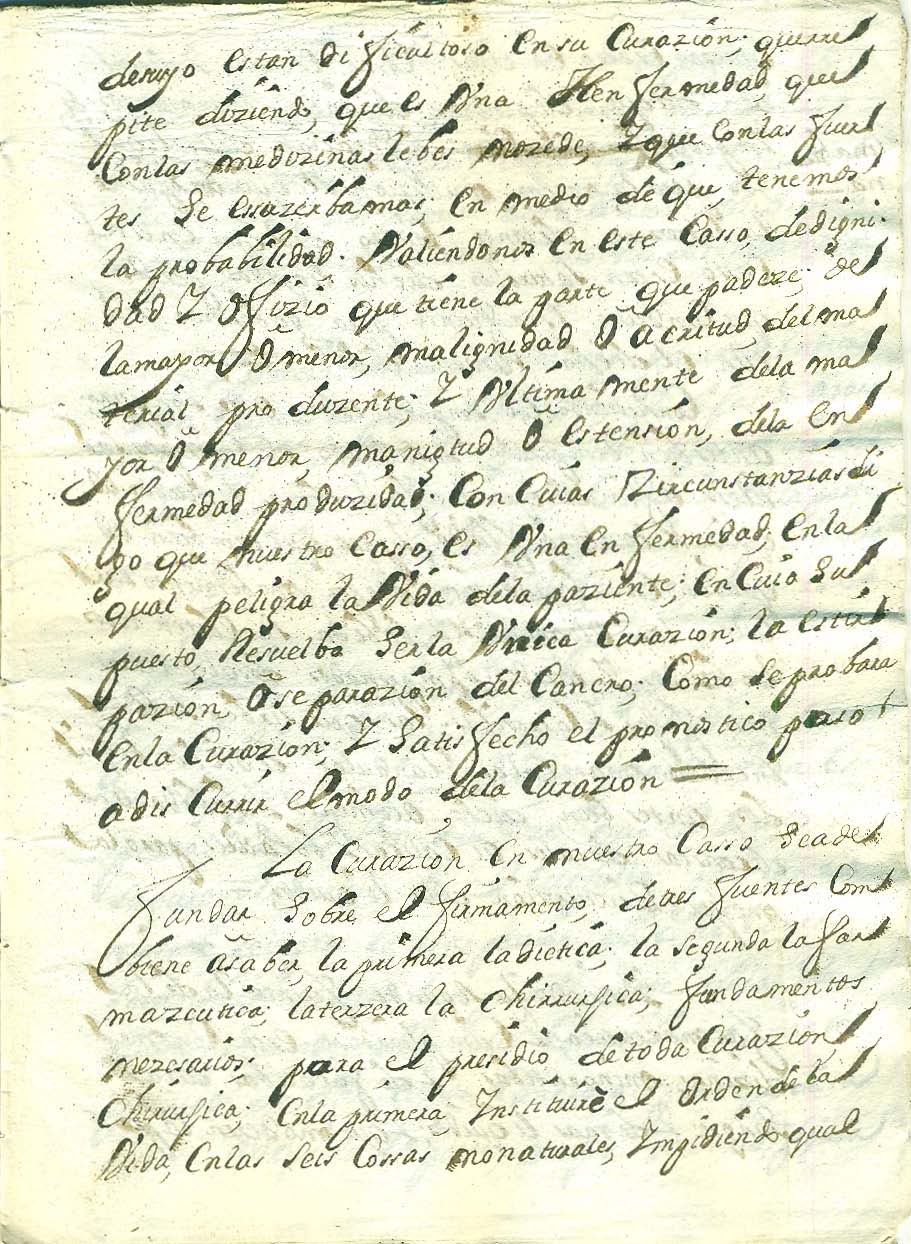 desuyo es tan difficultoso en su Curazión; que rre
pite diziendo, que es Vna Henfermedad, que
Con las medizinas lebes no zede, Y que Con las fuer
tes Se essazerba mas; en medio de que, tenemos
la probabilidad. Valiendonos en este Casso, de digni
dad Y Offizio que tiene la parte, que padeze; de
la mayor ô menor, malignidad ô acritud, del ma
terial produzente; Y Vltima mente de la ma
yor ô menor, manigtud ô estensión, de la en
fermedad produzidad; Con Cuias Zircunstanzias di
go que nuestro Casso, es Vna enfermedad; en la
qual peligra la Vida de la paziente; en Cuio Su
puesto, Resuelbo Ser la Vnica Curazión; la estir
pazión, ô separazión del Cancro; Como Se probara
en la Curazión; Y Satisfecho el pronostico paso
a dis Currir el modo de la Curazión =
La Curazion en nuestro Casso Sea de
fundar Sobre el firmamento, de tres fuentes Com
biene âsaber, la primera la diética; la Segunda la far
mazeutica; la terzera la Chirurgica; fundamentos
nezesarios para el presidio de toda Curazion
Chirurgica; en la primera, Ynstituire el Orden de la
Vida, en las Seis Cossas nonaturales, Ympidiendo qual